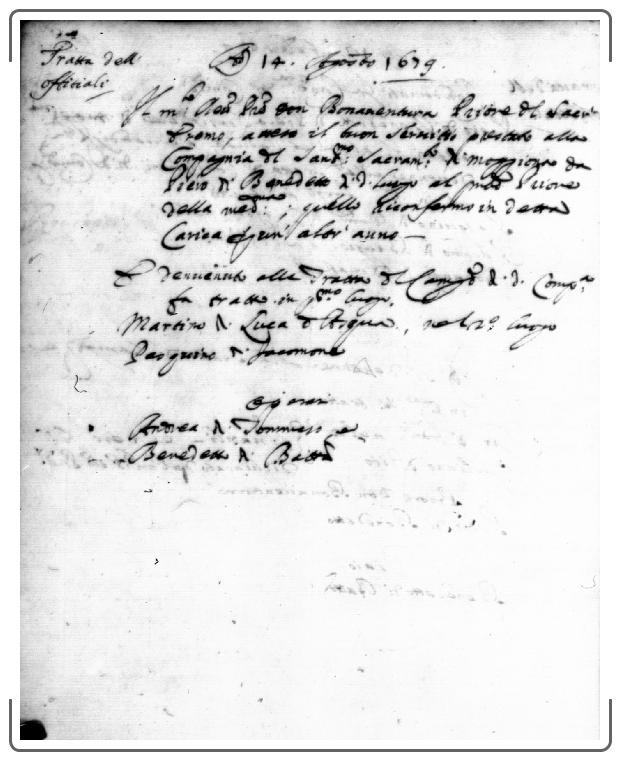 Tratta dell'
offitiali
Adì 14. Agosto 1679.
Il m.to Rev. P.re Don Bonaventura Priore del Sacr.
Eremo, atteso il buon servitio prestato alla
Compagnia del Sant.mo Sacram.to di Moggiona da
Piero di Benedetto di d.o luogo al pnte Priore
della med.ma; quello riconfermo in detta
Carica per un altr' anno
E devenuto alla Tratta del Camg.o di d.a Comp.a
fu tratto in p.mo luogo,
Martino di Luca d'Acqua, nel 2.o luogo
Pasquino di Jacomone
Operai
Andrea di Tommaso e
Benedetto di Batta